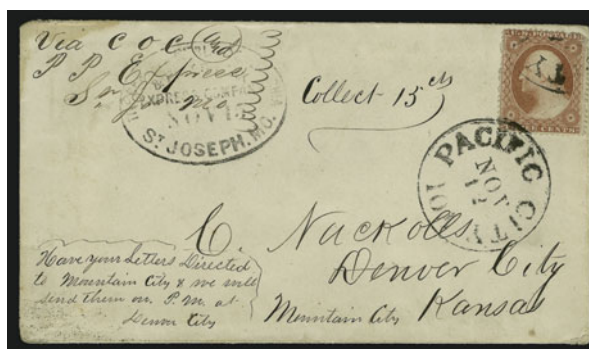 Via C O C and
P P Express
St. Jo Mo
EXPRESS COMPANY
NOV 15
ST JOSEPH. MO.
Collect 15 cts
PACIFIC CITY IOI
NOV
12
C. Nuckolls
Denver City
Kansas
Mountain City
Have your Letters Directed
to Mountain City & we will
send them on. P. M. at
Denver City